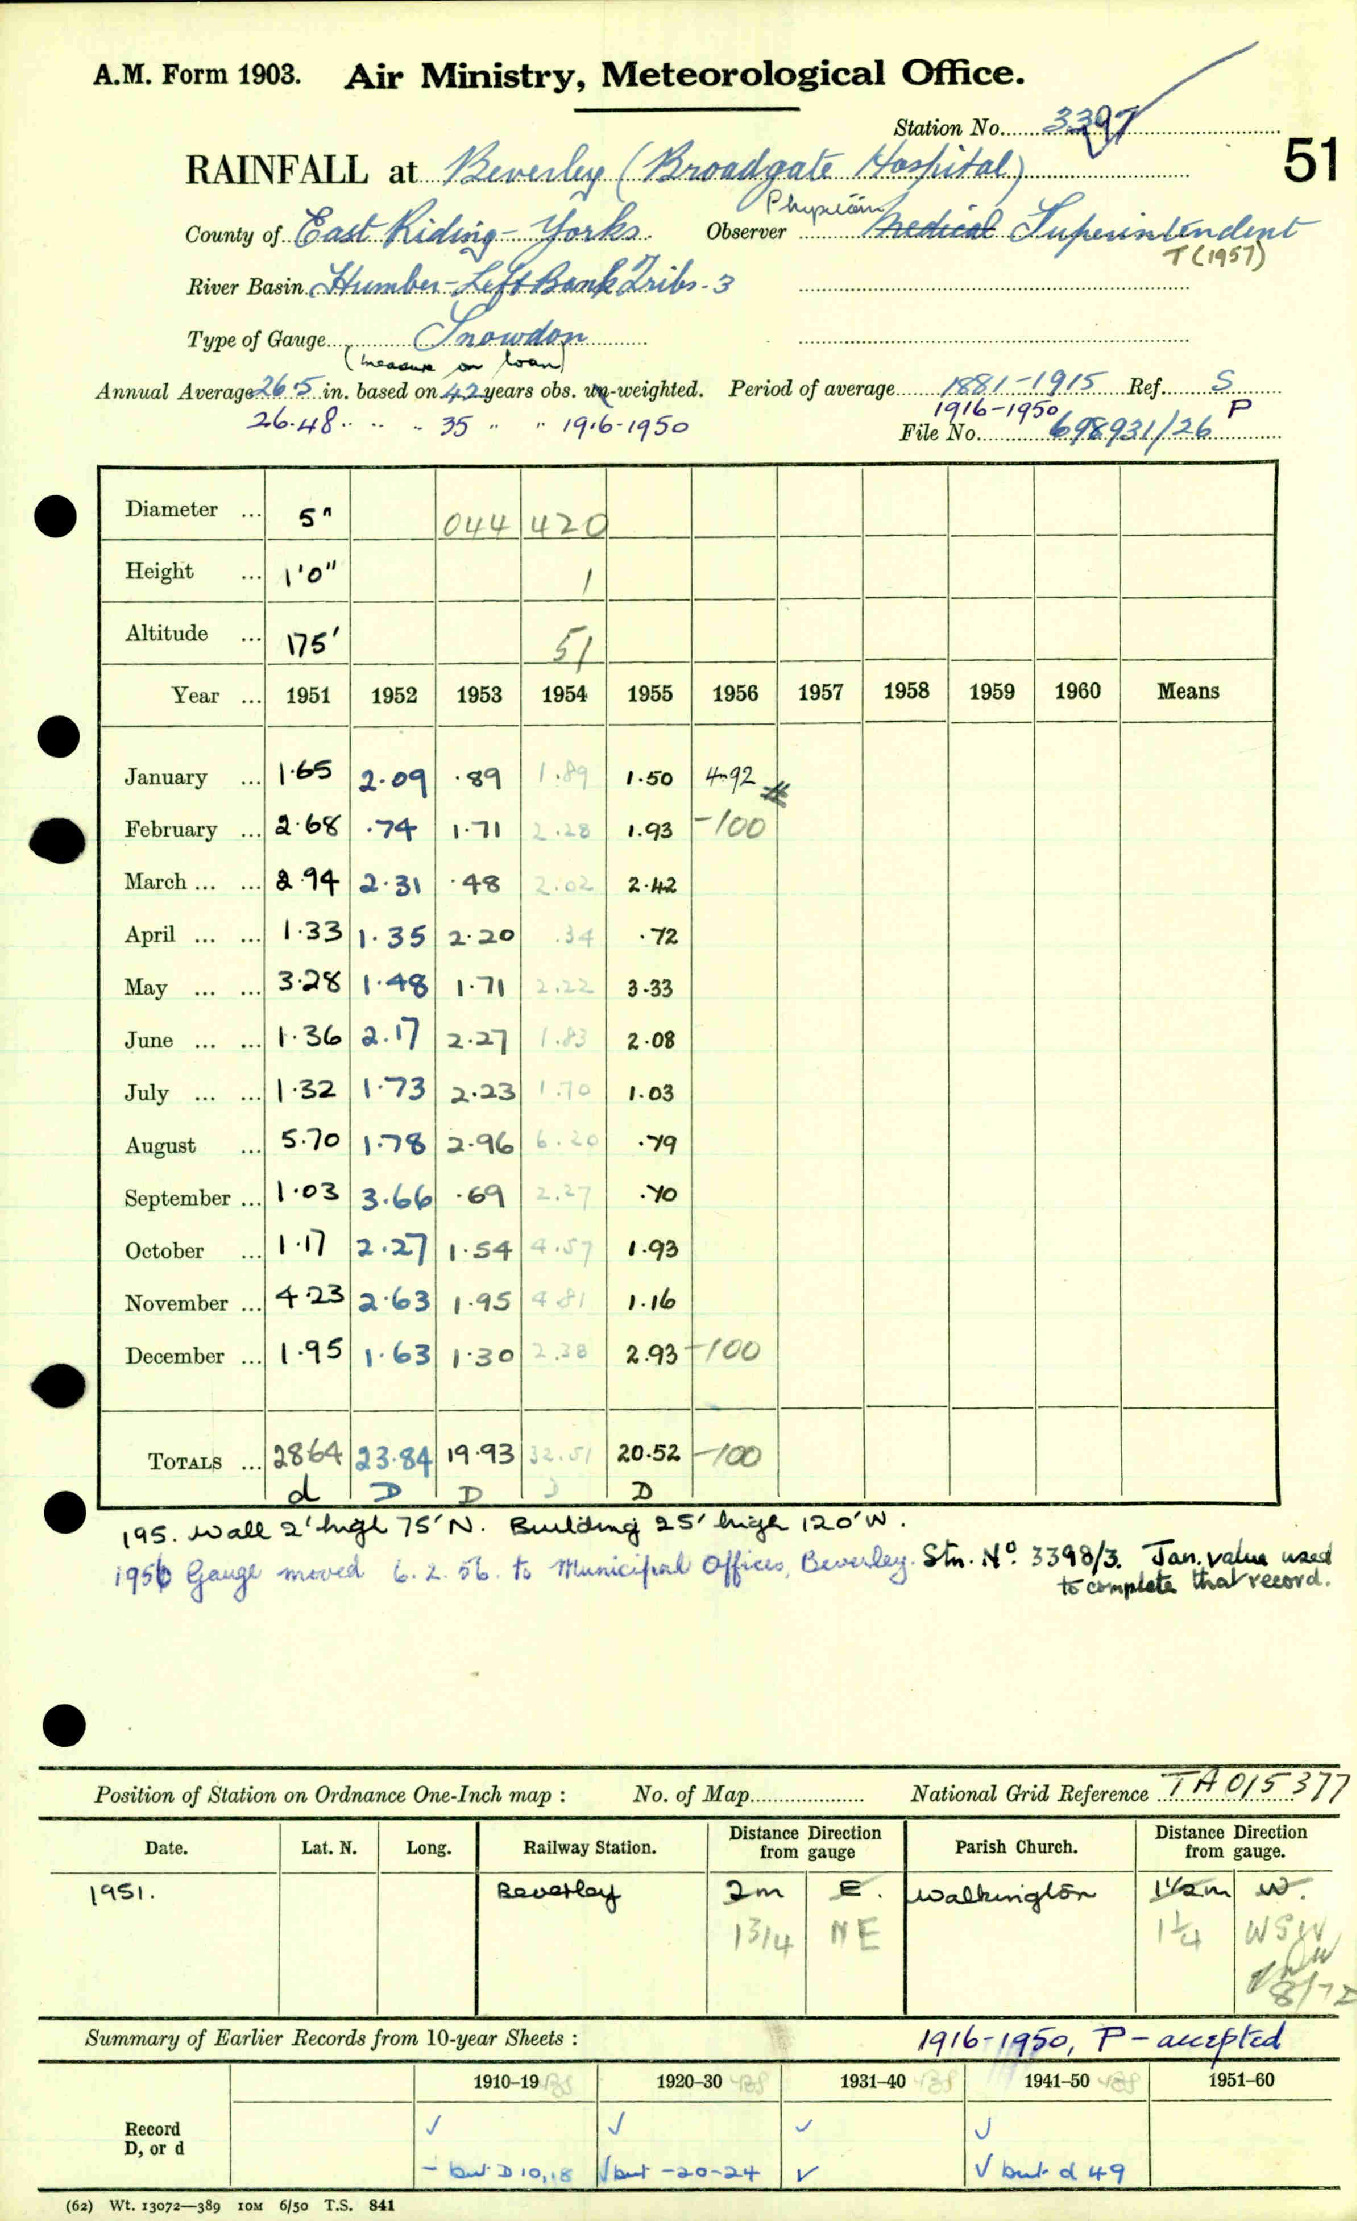 A.M. Form 1903. Air Ministry, Meteorological Office.
Station No. 3397
51
RAINFALL at Beverley (Broadgate Hospital)
Physician
County of East Riding - Yorks. Observer Medical Superintendent
T (1957)
River Basin Humber - Left Bank Tribs - 3
Type of Gauge Snowdon
(measure on loan)
Annual Average 26.5 in. based on 42 years obs. un-weighted. Period of average 1881-1915 Ref. S
1916-1950 P
26.48 " " " 35 " " 1916-1950 File No. 698931/26
Diameter ... 5" 044 420
Height ... 1'0" 1
Altitude ... 175' 51
Year ... 1951 1952 1953 1954 1955 1956 1957 1958 1959 1960 Means
January ... 1.65 2.09 .89 1.89 1.50 4.92 #
February ... 2.68 .74 1.71 2.28 1.93 -100
March ... ... 2.94 2.31 .48 2.02 2.42
April ... ... 1.33 1.35 2.20 .34 .72
May ... ... 3.28 1.48 1.71 2.22 3.33
June ... ... 1.36 2.17 2.27 1.83 2.08
July ... ... 1.32 1.73 2.23 1.70 1.03
August ... 5.70 1.78 2.96 6.20 .79
September ... 1.03 3.66 .69 2.27 .70
October ... 1.17 2.27 1.54 4.57 1.93
November ... 4.23 2.63 1.95 4.81 1.16
December ... 1.95 1.63 1.30 2.38 2.93 -100
TOTALS ... 28.64 23.84 19.93 32.51 20.52 -100
d D D D D
195. Wall 2' high 75' N. Building 25' high 120' W.
1956 Gauge moved 6.2.56. to Municipal Offices, Beverley. Stn. No. 3398/3. Jan. value used
to complete that record.
Position of Station on Ordnance One-Inch map : No. of Map National Grid Reference TA 015 377
Date. Lat. N. Long. Railway Station. Distance Direction from gauge Parish Church. Distance Direction from gauge.
1951. Beverley 2m E. Walkington 1½m W.
1 3/4 NE 1¼ WSW
8/72
Summary of Earlier Records from 10-year Sheets : 1916-1950, P - accepted
1910–19 1920–30 1931–40 1941–50 1951–60
Record ✓ ✓ ✓ ✓
D, or d - but D 10, 18 ✓ but - 20-24 ✓ ✓ but d 49
(62) Wt. 13072—389 10M 6/50 T.S. 841